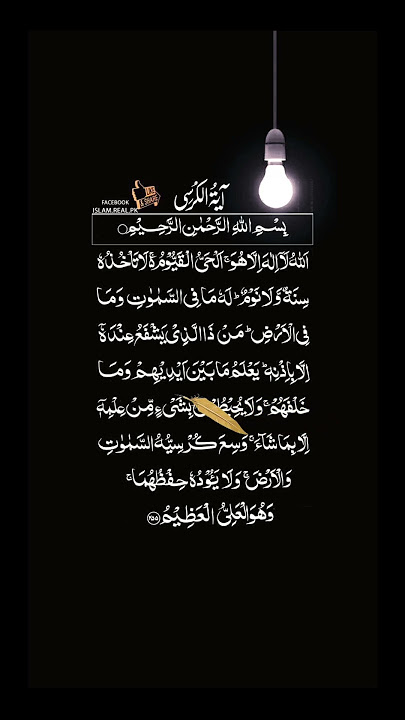 FACEBOOK
ISLAM.REAL.PK
LIKE & SHARE
آيَةُ الْكُرْسِى
بِسْمِ اللهِ الرَّحْمٰنِ الرَّحِيْمِ
اَللهُ لَاۤ اِلٰهَ اِلَّا هُوَۚ اَلْحَىُّ الْقَيُّوْمُ ەۚ لَا تَاْخُذُهٗ
سِنَةٌ وَّلَا نَوْمٌؕ لَهٗ مَا فِى السَّمٰوٰتِ وَمَا
فِى الْاَرْضِؕ مَنْ ذَا الَّذِىْ يَشْفَعُ عِنْدَهٗۤ
اِلَّا بِاِذْنِهٖؕ يَعْلَمُ مَا بَيْنَ اَيْدِيْهِمْ وَمَا
خَلْفَهُمْۚ وَلَا يُحِيْطُوْنَ بِشَىْءٍ مِّنْ عِلْمِهٖۤ
اِلَّا بِمَا شَآءَۚ وَسِعَ كُرْسِيُّهُ السَّمٰوٰتِ
وَالْاَرْضَۚ وَلَا يَـُٔوْدُهٗ حِفْظُهُمَاۚ
وَهُوَ الْعَلِىُّ الْعَظِيْمُ ۝۲۵۵